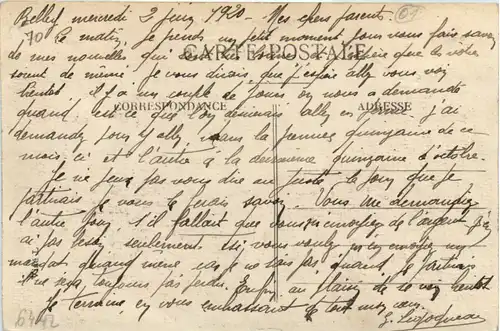 Belley mercredi 2 juin 1920 - Mes chers parents.
70 Ce matin, je prends un petit moment pour vous faire savoir
de mes nouvelles qui sont très bonnes et j'espère que les votre
soient de même je vous dirais que j'espère aller vous voir
bientôt il y a un couple de jours on nous a demandé
CARTE POSTALE
CORRESPONDANCE
ADRESSE
quand est ce que l'on désirerais aller en perme j'ai
demandé pour y aller dans la première quinzaine de ce
mois ci et l'autre a la dernière quinzaine d'octobre.
Je ne peux pas vous dire au juste le jour que je
partirais je vous le ferais savoir. Vous me demandiez
l'autre jour s'il fallait que vous m'envoyez de l'argent
ai pas besoin seulement si vous voulez m'en envoyer un
mandat quand même, car je ne sais pas quand je partirais
il ne sera toujours pas perdu. au plaisir de se voir bientôt
Je termine en vous embrassant de tout mon cœur.
G.